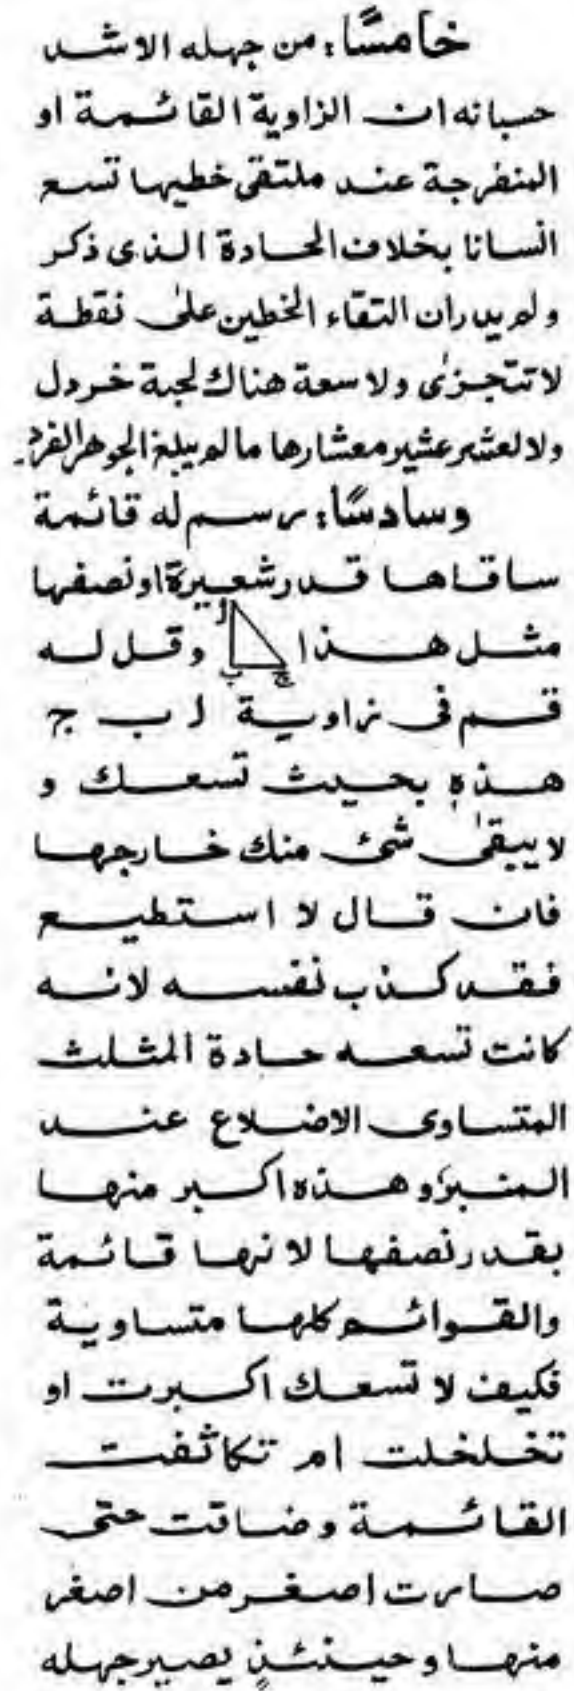 خامسًا: من جهله الاشد
حسبانه ان الزاوية القائمة او
المنفرجة عند ملتقى خطيها تسع
انسانا بخلاف الحادة الذى ذكر
ولم يدر ان التقاء الخطين على نقطة
لا تتجزى ولا سعة هناك لحبة خردل
ولا لعشر عشير معشارها ما لم يبلغ الجوهر الفرد.
وسادسًا: رسم له قائمة
ساقاها قدر شعيرة او نصفها
مثل هذا ا ب ج وقل له
قم فى زاوية ا ب ج
هذه بحيث تسعك و
لا يبقى شئ منك خارجها
فان قال لا استطيع
فقد كذب نفسه لانه
كانت تسعه حادة المثلث
المتساوى الاضلاع عند
المنبر وهذه اكبر منها
بقدر نصفها لانها قائمة
والقوائم كلها متساوية
فكيف لا تسعك اكبرت او
تخلخلت ام تكاثفت
القائمة وضاقت حتى
صارت اصغر من اصغر
منها وحينئذٍ يصير جهله